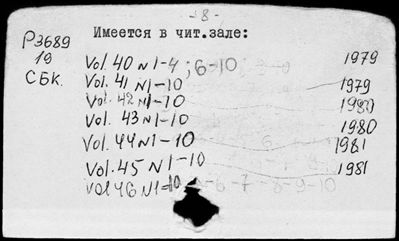 -8-
Имеется в чит.зале:
Р3689
19
СБК.
Vol. 40 N1-4; 6-10 1979
Vol. 41 N1-10 1979
Vol. 42 N1-10 1980
Vol. 43 N1-10 1980
Vol. 44 N1-10 1981
Vol. 45 N1-10 1981
Vol 46 N1-10